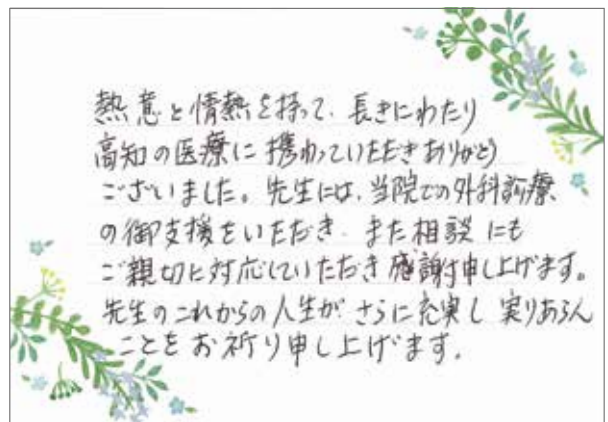 熱意と情熱を持って、長きにわたり
高知の医療に携わっていただきありがとう
ございました。先生には、当院での外科診療
の御支援をいただき、また相談にも
ご親切に対応していただき感謝申し上げます。
先生のこれからの人生が、さらに充実し実りあらん
ことをお祈り申し上げます。